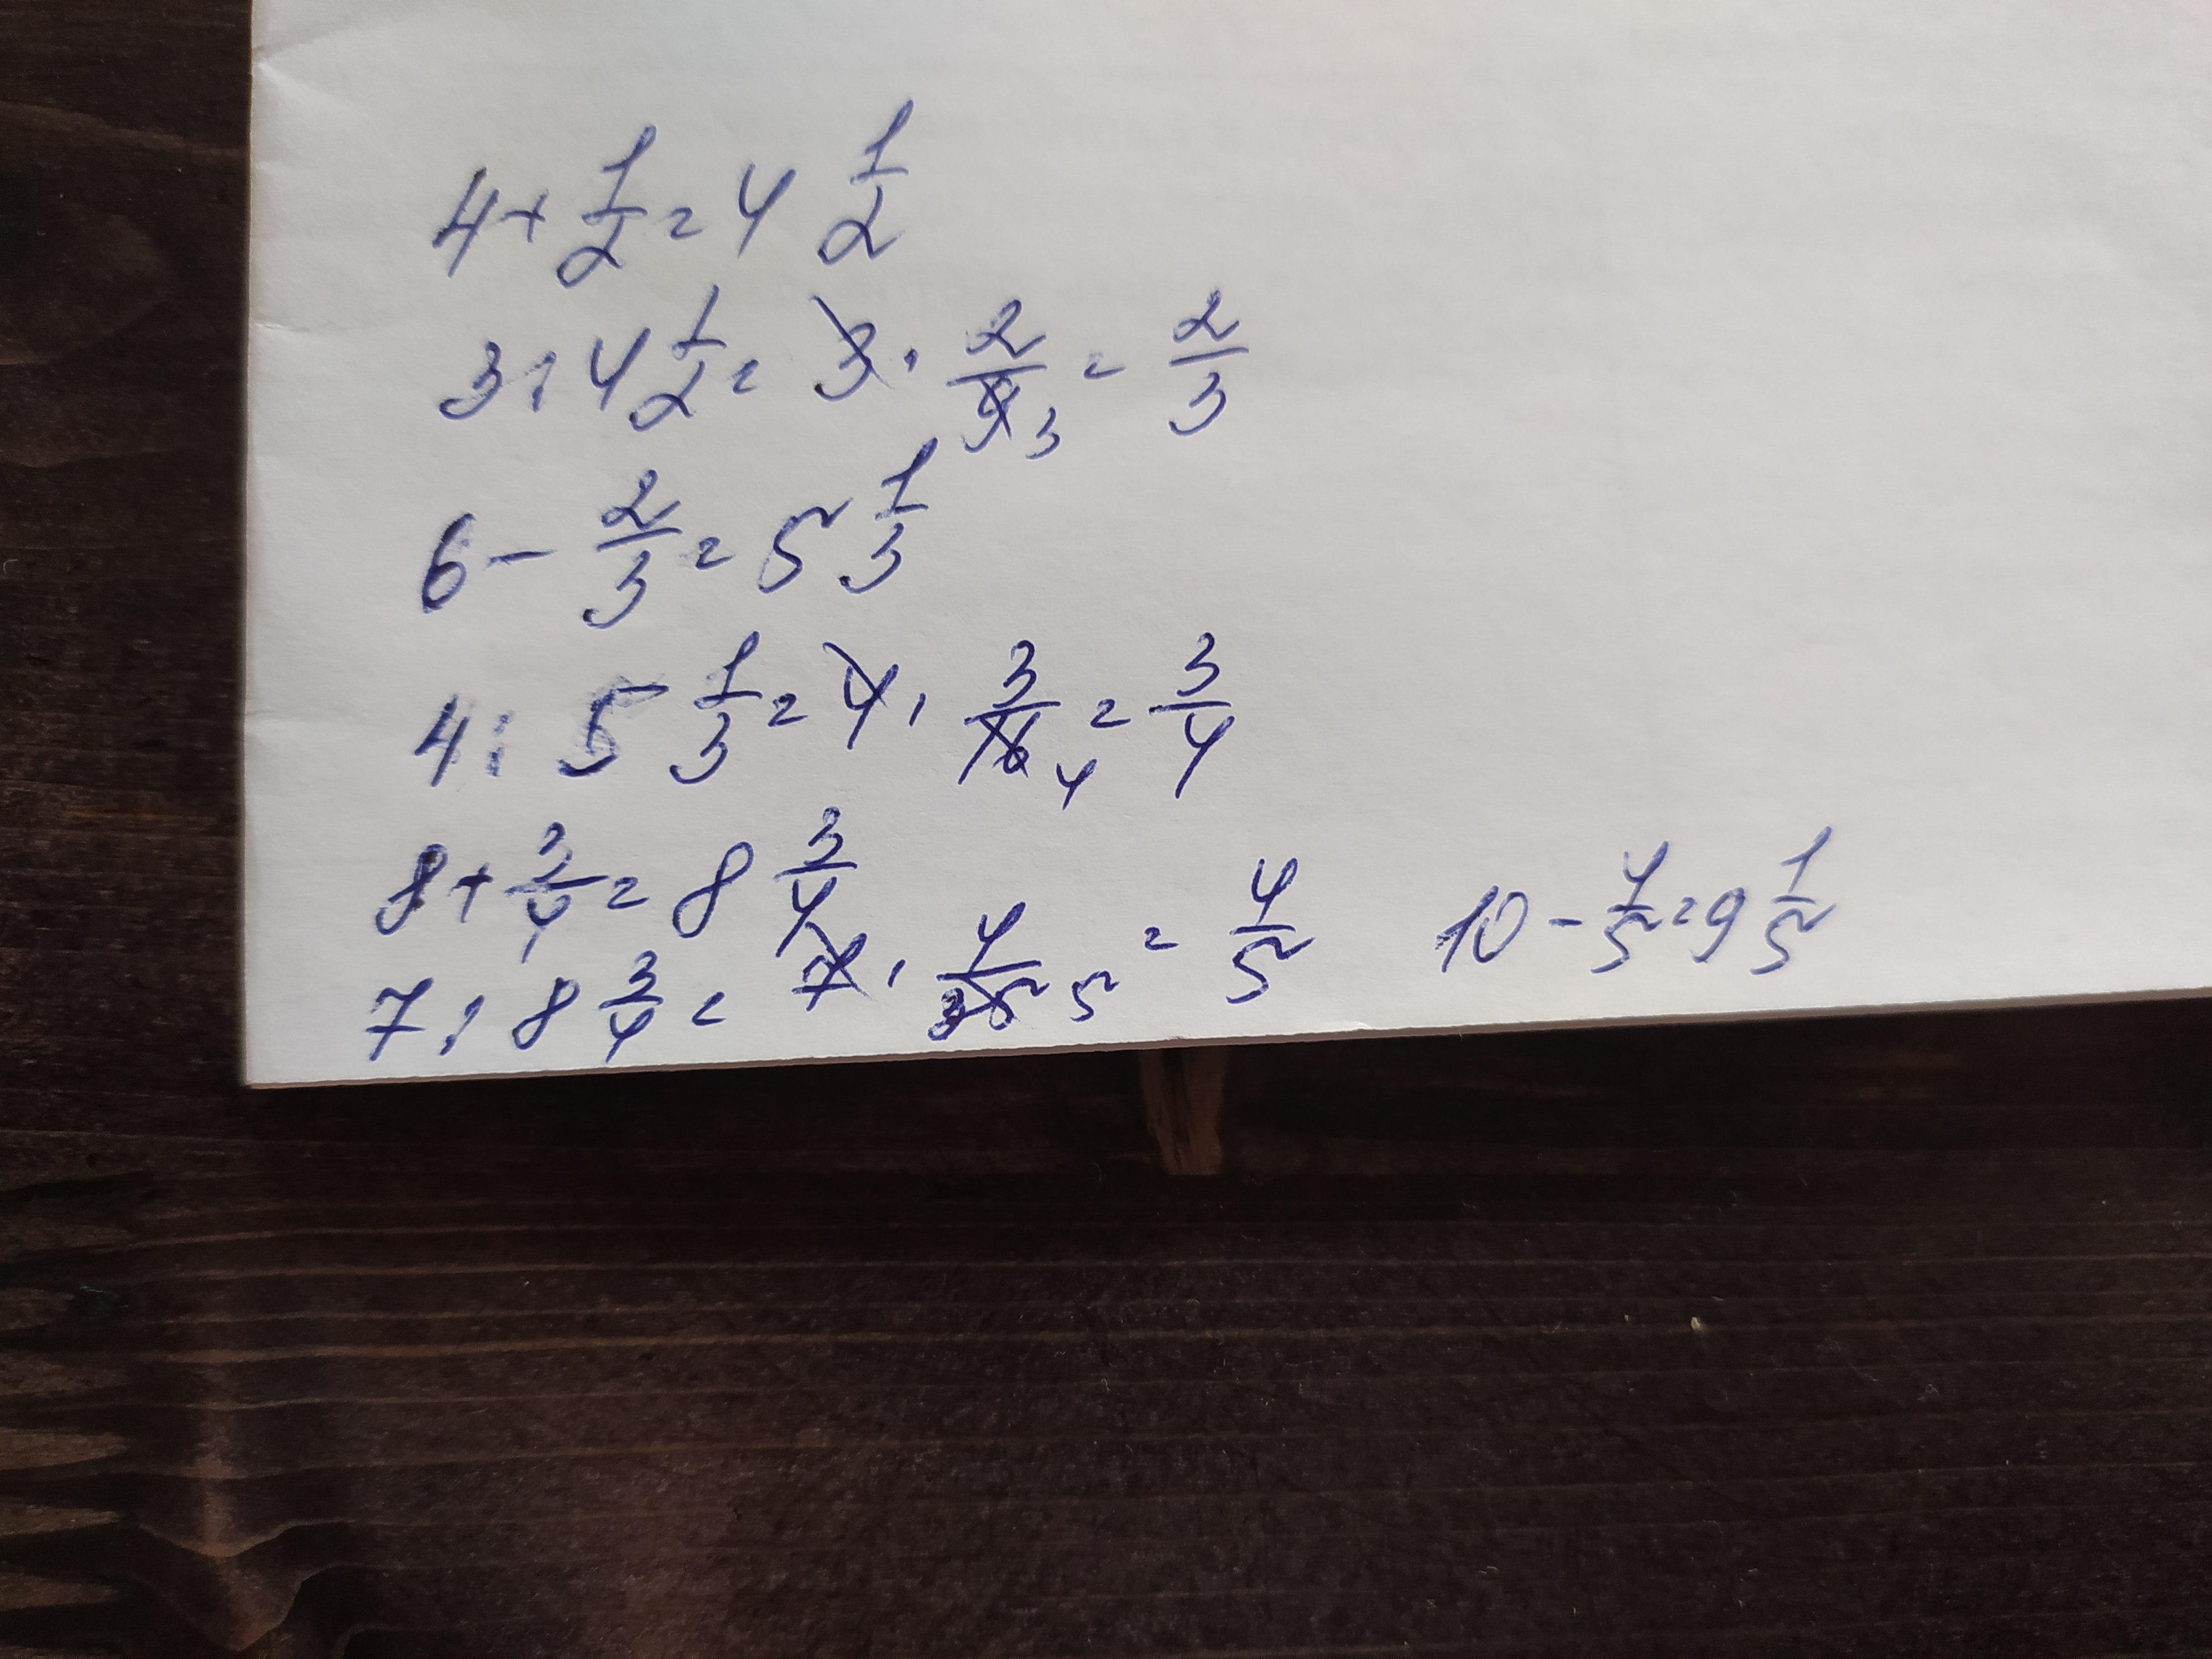 4 + 1/2 = 4 1/2
3 : 4 1/2 = 3 · 2/9 3 = 2/3
6 - 2/3 = 5 1/3
4 : 5 1/3 = 4 · 3/16 4 = 3/4
8 + 3/4 = 8 3/4
7 : 8 3/4 = 7 · 4/35 5 = 4/5 10 - 4/5 = 9 1/5